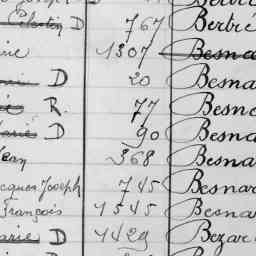 Célestin D 767 Bertré
1307
D 20 Besna
R. 77 Besn
Marie D 90 Besna
Jean 368 Besna
Jacques Joseph 745 Besnar
François 1545 Besna
Marie D 1429 Bezar